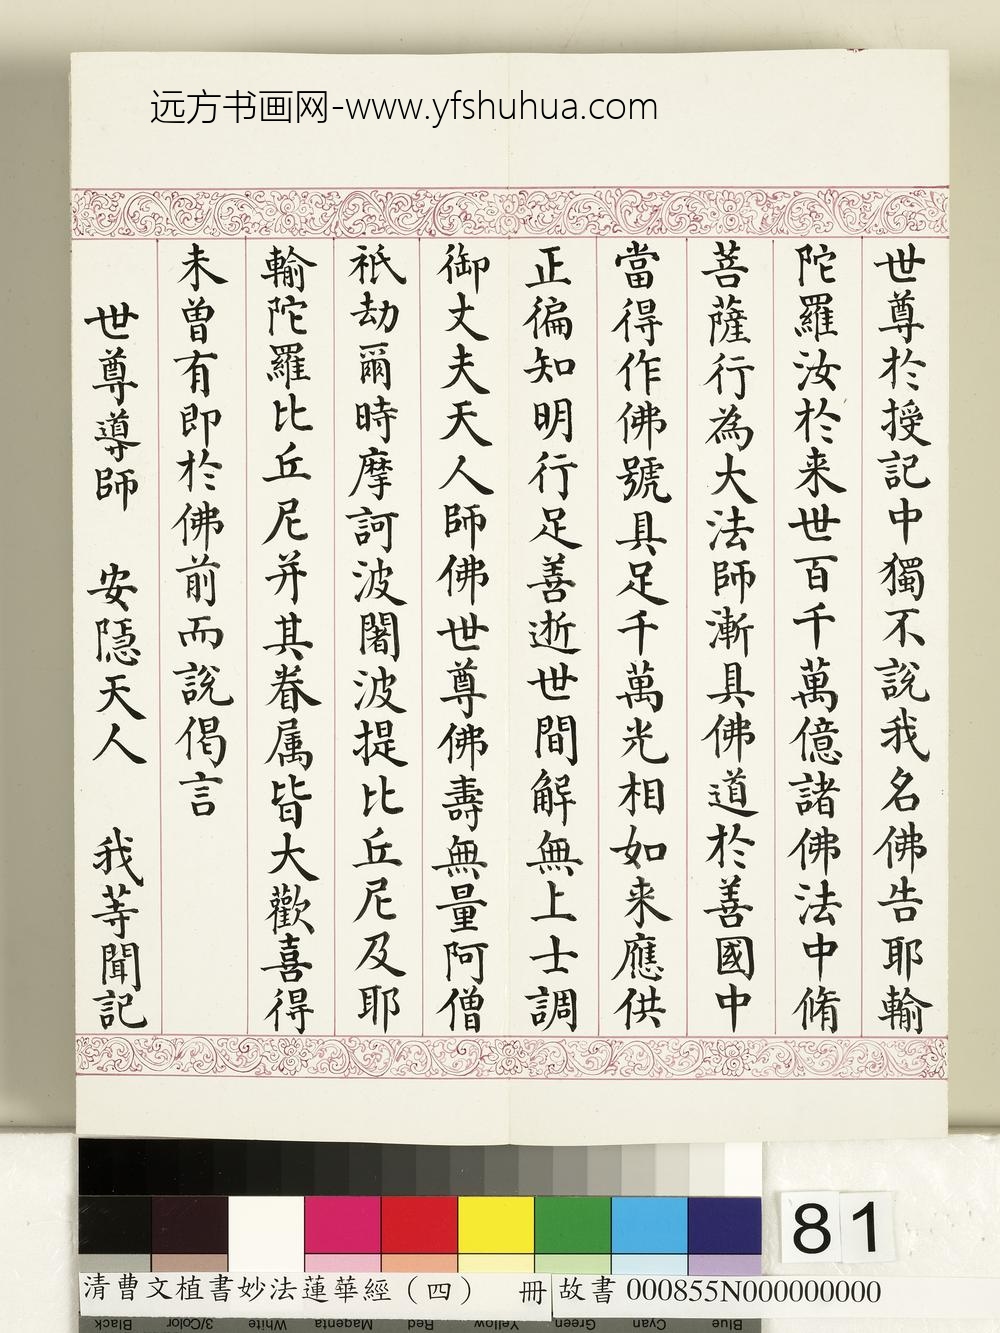 远方书画网-www.yfshuhua.com
世尊於授記中獨不說我名佛告耶輸
陀羅汝於来世百千萬億諸佛法中脩
菩薩行為大法師漸具佛道於善國中
當得作佛號具足千萬光相如来應供
正徧知明行足善逝世間解無上士調
御丈夫天人師佛世尊佛壽無量阿僧
祇劫爾時摩訶波闍波提比丘尼及耶
輸陀羅比丘尼并其眷属皆大歡喜得
未曾有即於佛前而說偈言
世尊導師 安隱天人 我等聞記
81
清曹文植書妙法蓮華經（四） 冊 故書 000855N000000000
Black 3/Color White Magenta Red Yellow Green Cyan Blue